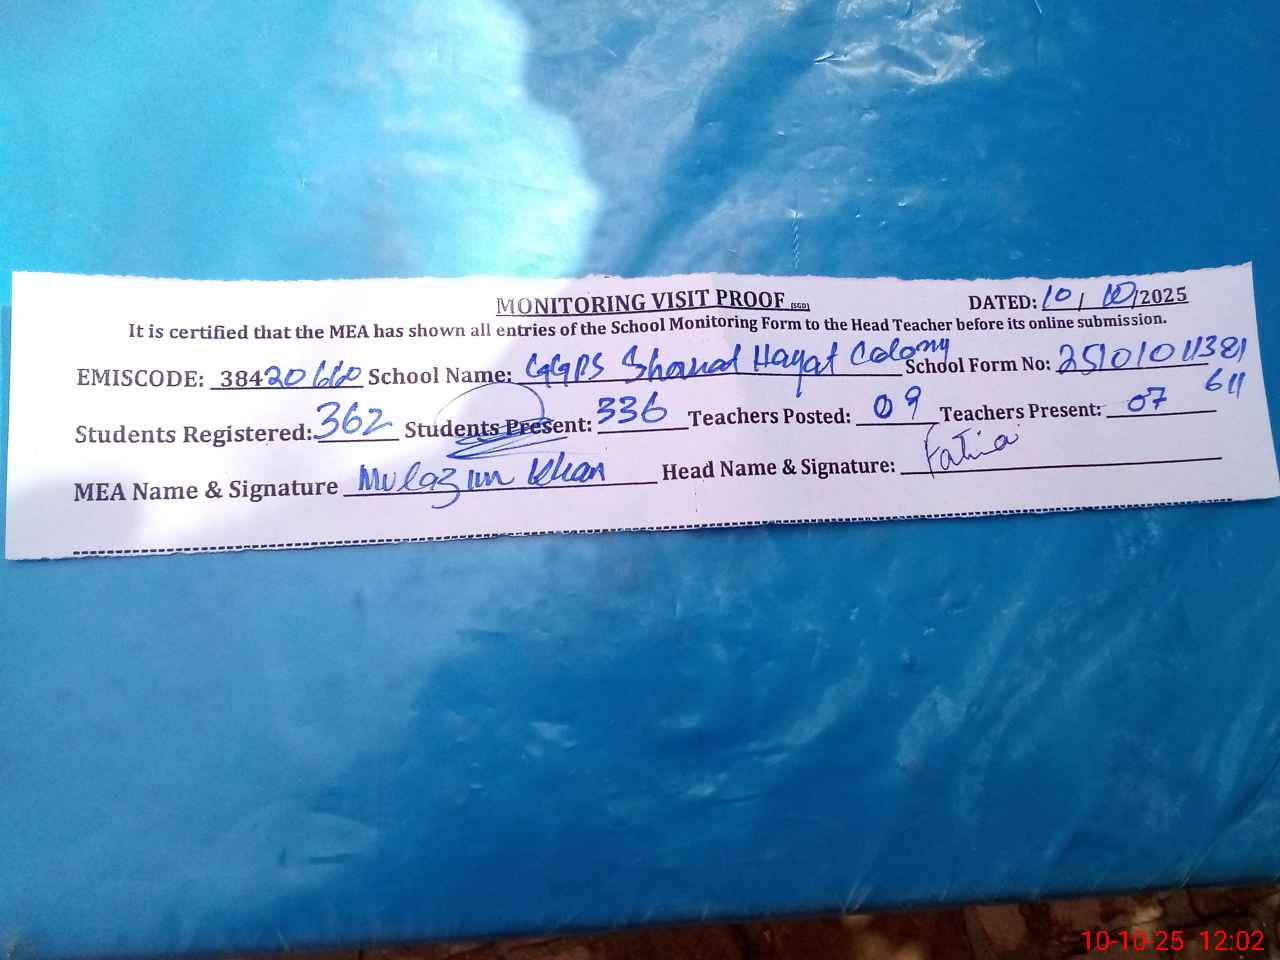 MONITORING VISIT PROOF (SGD) DATED: 10/10/2025
It is certified that the MEA has shown all entries of the School Monitoring Form to the Head Teacher before its online submission.
EMISCODE: 38420660 School Name: GGPS Hayat Colony School Form No: 25101011381
611
Students Registered: 362 Students Present: 336 Teachers Posted: 09 Teachers Present: 07
MEA Name & Signature Mulazim Khan Head Name & Signature:
10-10-25 12:02